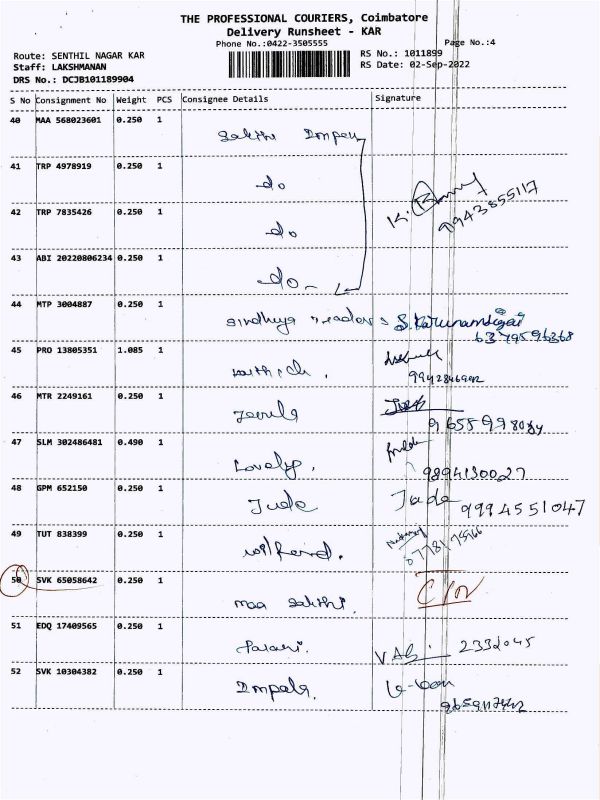 THE PROFESSIONAL COURIERS, Coimbatore
Delivery Runsheet - KAR
Phone No.:0422-3505555
Page No.:4
Route: SENTHIL NAGAR KAR
RS No.: 1011899
Staff: LAKSHMANAN
RS Date: 02-Sep-2022
DRS No.: DCJB101189904
S No Consignment No Weight PCS Consignee Details Signature
40 MAA 568023601 0.250 1
Sakthi
41 TRP 4978919 0.250 1
do
K.
9943855117
42 TRP 7835426 0.250 1
do
43 ABI 20220806234 0.250 1
do
44 MTP 3004887 0.250 1
Sindhya Traders S.Karunambigai
6379596368
45 PRO 13805351 1.085 1
46 MTR 2249161 0.250 1
47 SLM 302486481 0.490 1
Lovely. 9894130027
48 GPM 652150 0.250 1
Jude Jude 9994551047
49 TUT 838399 0.250 1
50 SVK 65058642 0.250 1
maa Sakthi.
51 EDQ 17409565 0.250 1
Palani. 2332045
52 SVK 10304382 0.250 1
Impala.